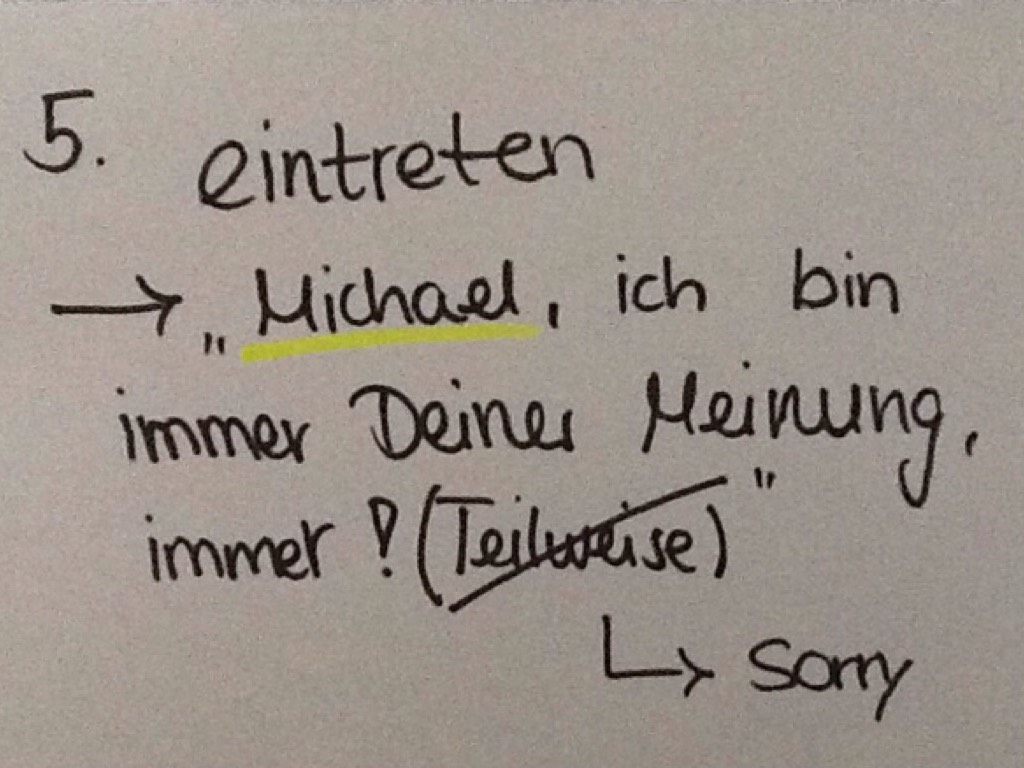 5. eintreten
→ „Michael, ich bin
immer Deiner Meinung,
immer! (Teilweise)"
↳ Sorry